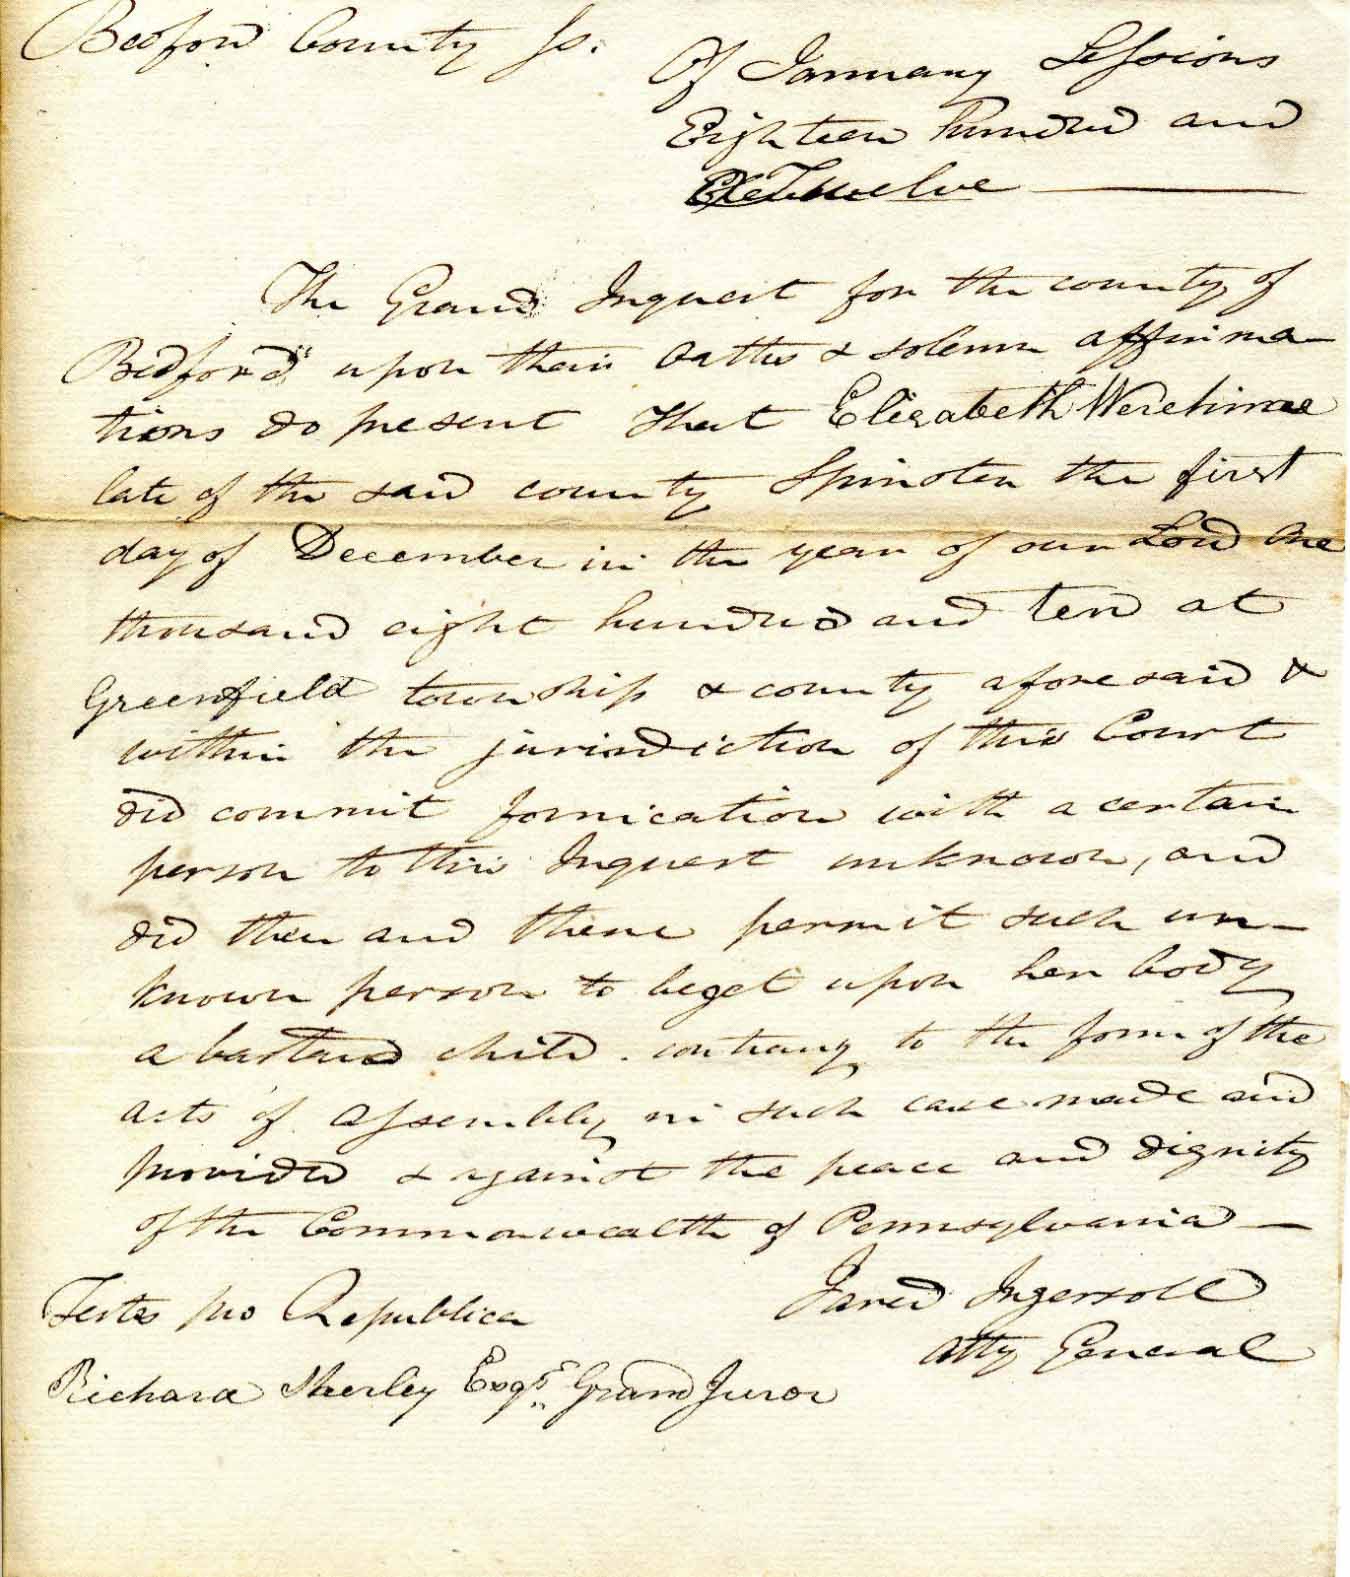 Bedford County ss.
Of January Sessions
Eighteen hundred and
Twelve
The Grand Inquest for the county of
Bedford upon their oaths & solemn affirma-
tions do present That Elizabeth Werehimae
late of the said county Spinster the first
day of December in the year of our Lord One
thousand eight hundred and ten at
Greenfield township & county aforesaid &
within the jurisdiction of this Court
did commit fornication with a certain
person to this Inquest unknown, and
did then and there permit such un-
known person to beget upon her body
a bastard child. contrary to the form of the
acts of assembly in such case made and
provided & against the peace and dignity
of the Commonwealth of Pennsylvania
Jared Ingersoll
Atty General
Testes pro Republica
Richard Sherley Esqr. Grand Juror